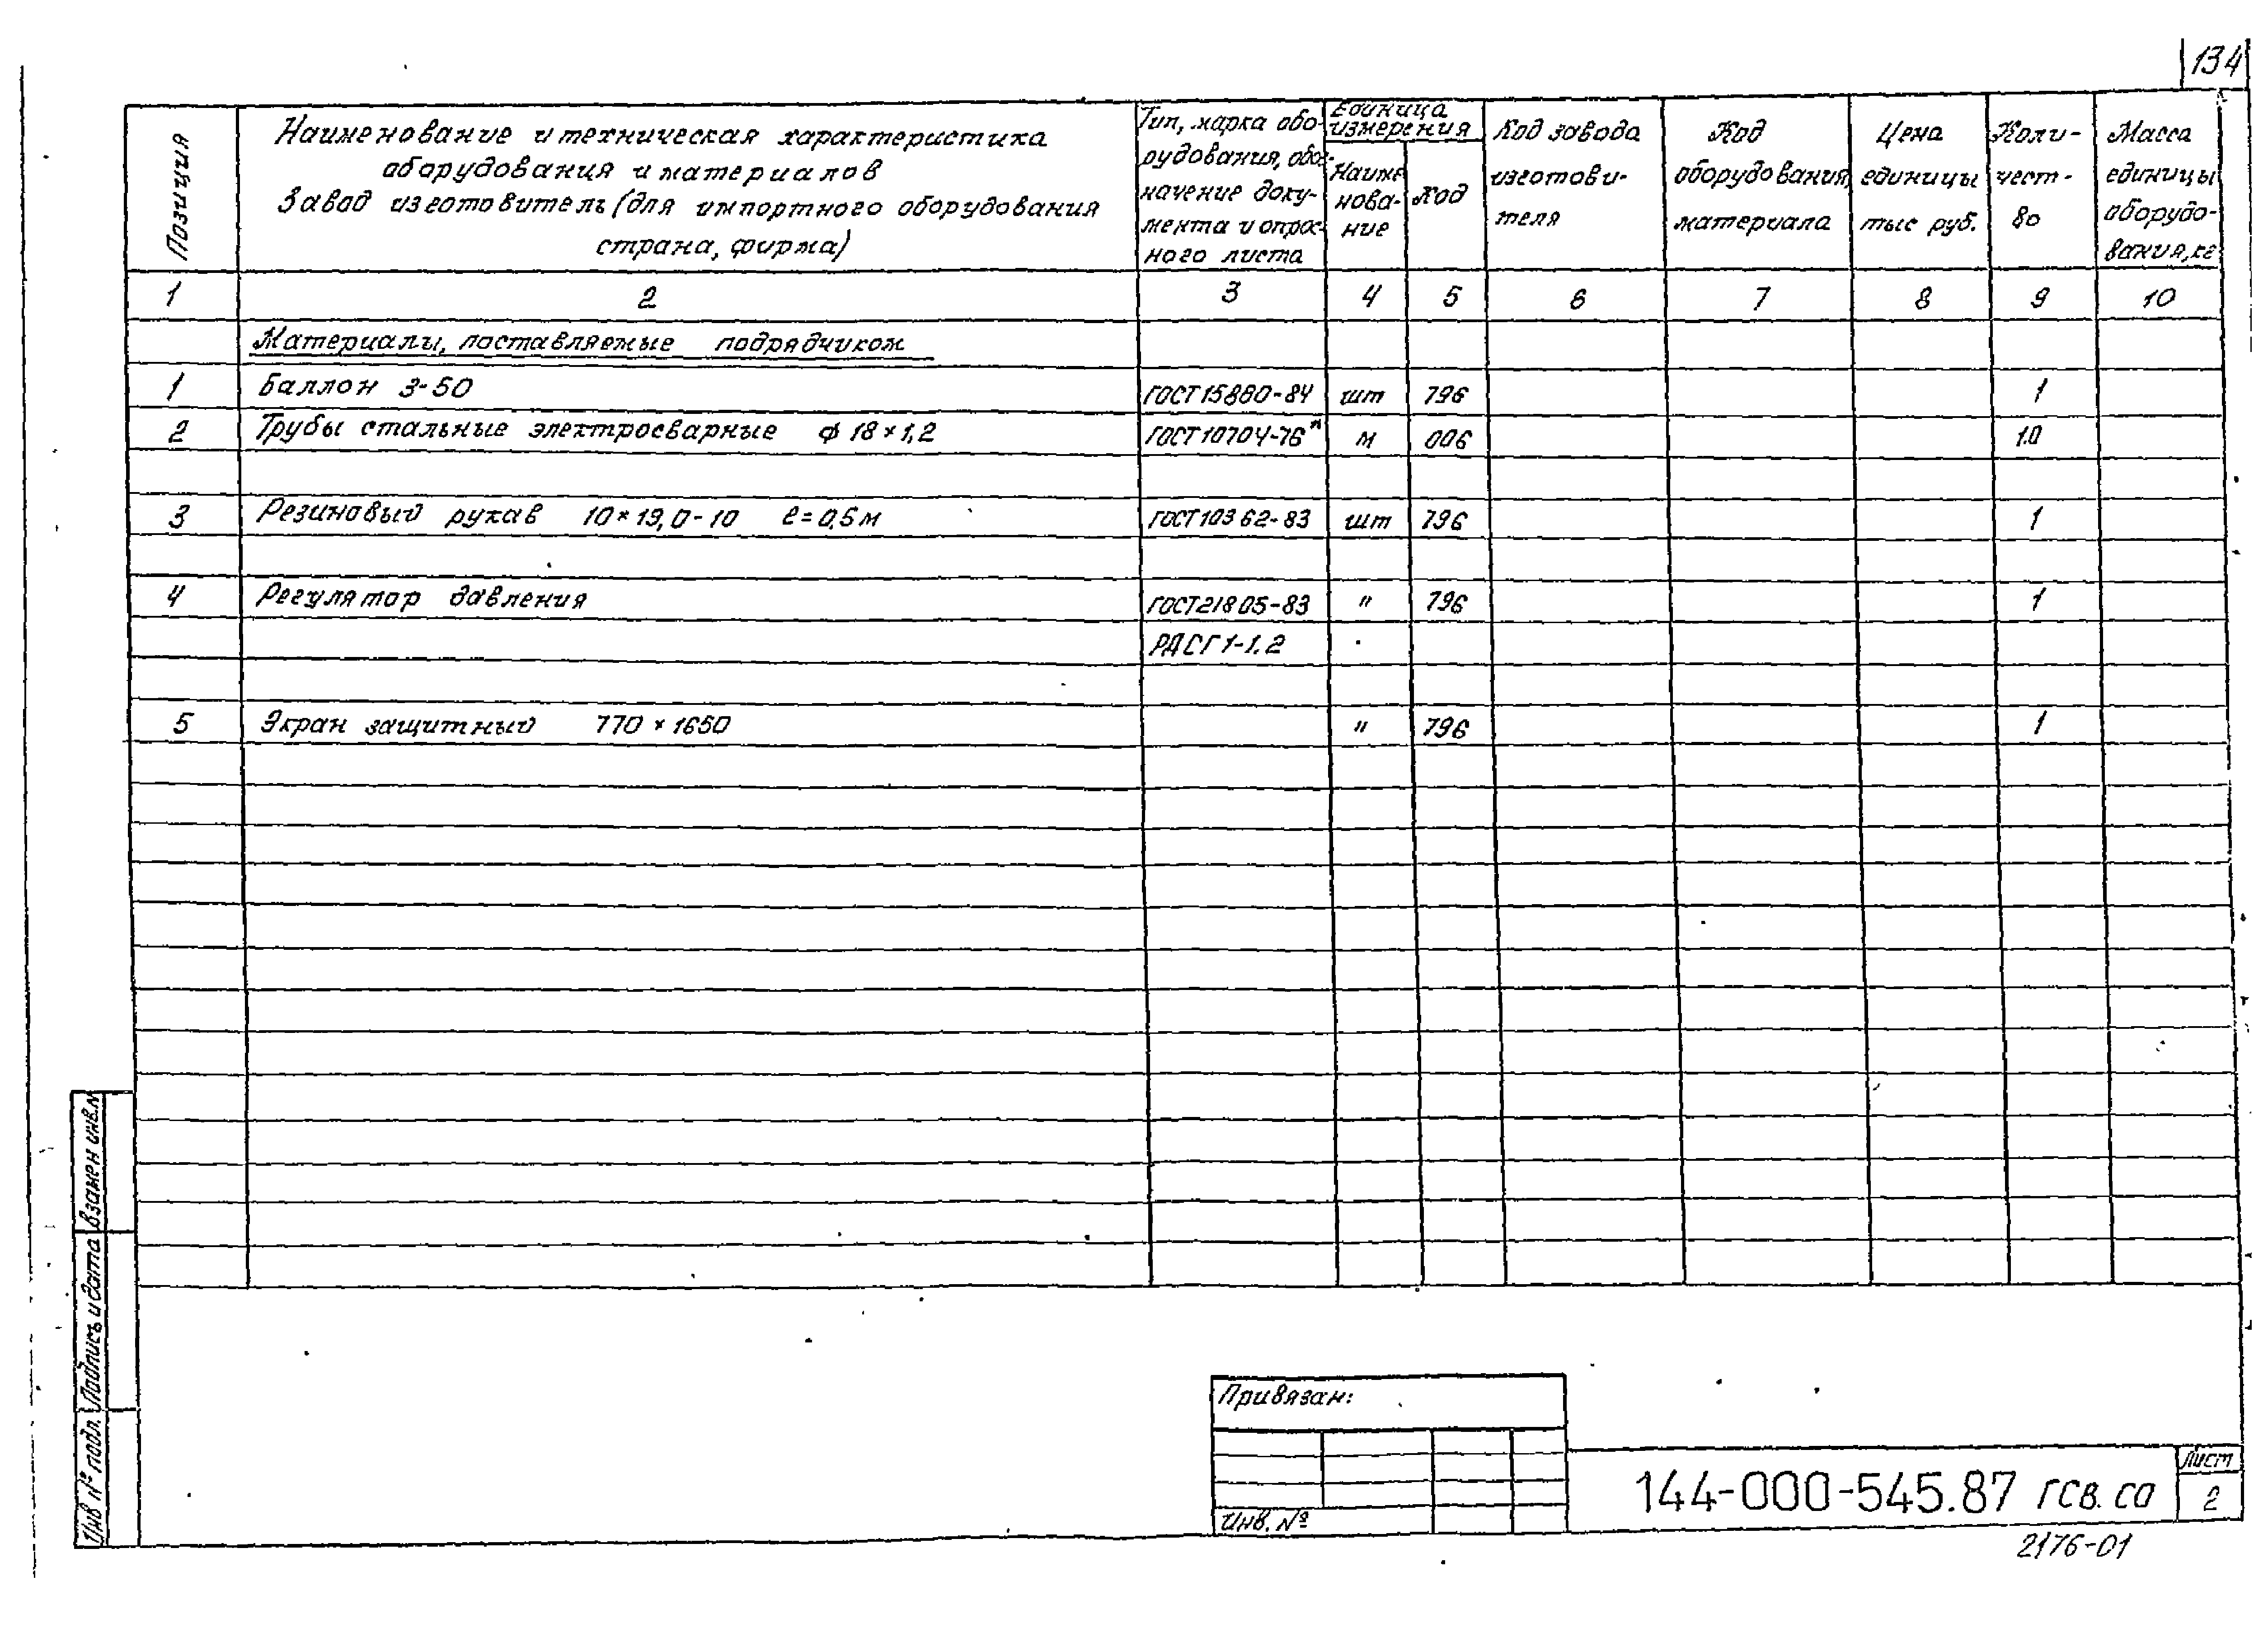 134
Позиция
Наименование и техническая характеристика
оборудования и материалов
Завод изготовитель (для импортного оборудования
страна, фирма)
Тип, марка обо-
рудования, обоз-
начение доку-
мента и опрос-
ного листа
Единица
измерения
Наиме
нова-
ние
Код
Код завода
изготови-
теля
Код
оборудования,
материала
Цена
единицы
тыс руб.
Коли-
чест-
во
Масса
единицы
оборудо-
вания, кг
1 2 3 4 5 6 7 8 9 10
Материалы, поставляемые подрядчиком
1 Баллон 3-50 ГОСТ 15860-84 шт 796 1
2 Трубы стальные электросварные ф 18×1,2 ГОСТ 10704-76* м 006 1.0
3 Резиновый рукав 10×19,0-10 ℓ=0,5м ГОСТ 10362-83 шт 796 1
4 Регулятор давления ГОСТ 21805-83 " 796 1
РДСГ 1-1.2
5 Экран защитный 770 × 1650 " 796 1
Взамен инв.N
Подпись и дата
Инв № подл.
Привязан:
Инв. №
144-000-545.87 ГСВ. СО
Лист
2
2176-01